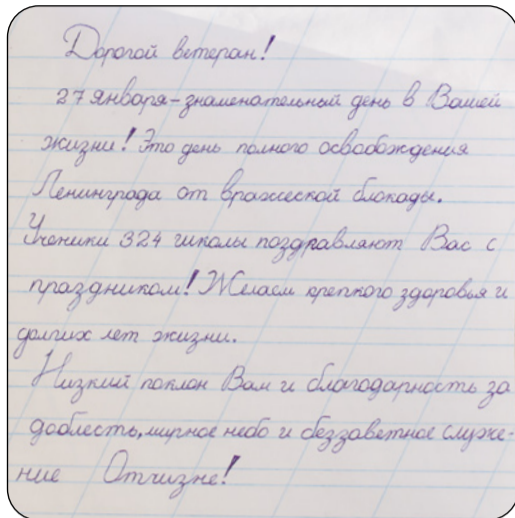 Дорогой ветеран!
27 января-знаменательный день в Вашей
жизни! Это день полного освобождения
Ленинграда от вражеской блокады.
Ученики 324 школы поздравляют Вас с
праздником! Желаем крепкого здоровья и
долгих лет жизни.
Низкий поклон Вам и благодарность за
доблесть, мирное небо и беззаветное служе-
ние Отчизне!